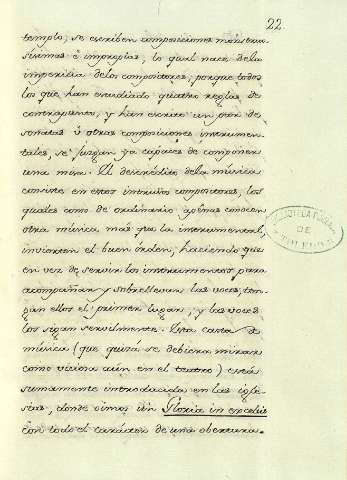 22.
templo, se escriben composiciones monstruo-
sisimas é impropias, lo qual nace de la
impericia delos compositores; porque todos
los que han estudiado quatro reglas de
contrapunto, y han escrito un par de
sonatas ú otras composiciones instrumen-
tales, se juzgan ya capaces de componer
una misa. El descredito dela música
consiste en estos intrusos compositores, los
quales como de ordinario apénas conocen
otra música mas que la instrumental,
invierten el buen órden, haciendo que
en vez de servir los instrumentos para
acompañar y sobrellevar las voces, ten-
gan ellos el primer lugar, y las voces
los sigan servilmente. Esta casta de
música (que quizá se debiera mirar
como viciosa aún en el teatro) está
sumamente introducida en las igle-
sias, donde oimos un Gloria in excelsis
con todo el carácter de una obertura.
DE